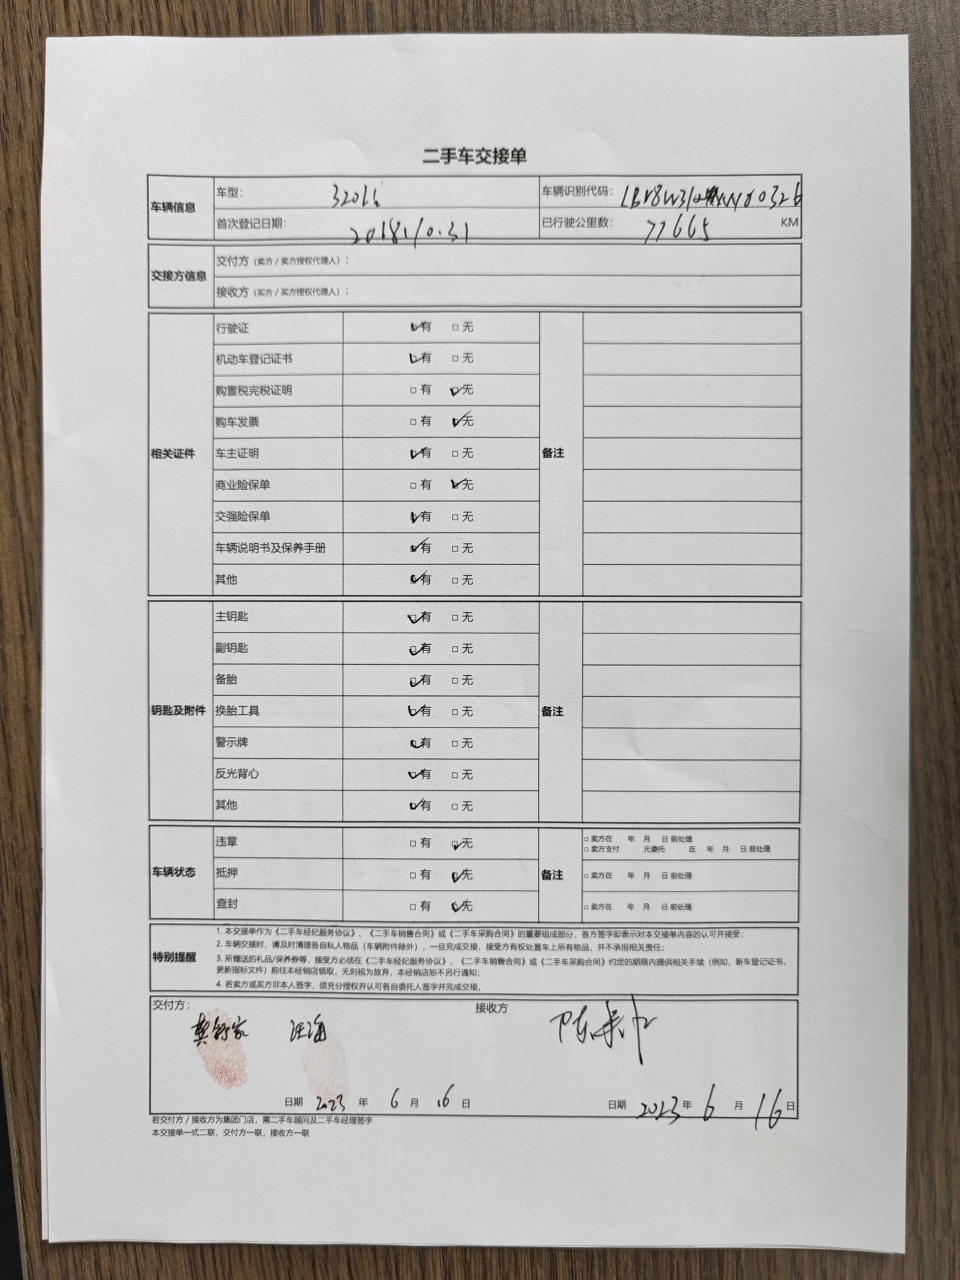 二手车交接单
车辆信息
车型： 320Li
车辆识别代码：
首次登记日期： 2018.10.31
已行驶公里数： 77665 KM
交接方信息
交付方（卖方/卖方授权代理人）：
接收方（买方/买方授权代理人）：
相关证件
行驶证 ☑有 □无
机动车登记证书 ☑有 □无
购置税完税证明 □有 ☑无
购车发票 □有 ☑无
车主证明 ☑有 □无
商业险保单 □有 ☑无
交强险保单 ☑有 □无
车辆说明书及保养手册 ☑有 □无
其他 ☑有 □无
备注
钥匙及附件
主钥匙 ☑有 □无
副钥匙 ☑有 □无
备胎 ☑有 □无
换胎工具 ☑有 □无
警示牌 ☑有 □无
反光背心 ☑有 □无
其他 ☑有 □无
备注
车辆状态
违章 □有 ☑无
抵押 □有 ☑无
查封 □有 ☑无
备注
□卖方在 年 月 日前处理
□卖方支付 元委托 在 年 月 日前处理
□卖方在 年 月 日前处理
□卖方在 年 月 日前处理
特别提醒
1. 本交接单作为《二手车经纪服务协议》、《二手车销售合同》或《二手车采购合同》的重要组成部分，各方签字即表示对本交接单内容的认可并接受；
2. 车辆交接时，请及时清理各自私人物品（车辆附件除外），一旦完成交接，接受方有权处置车上所有物品，并不承担相关责任；
3. 所赠送的礼品/保养券等，接受方必须在《二手车经纪服务协议》、《二手车销售合同》或《二手车采购合同》约定的期限内提供相关手续（例如、新车登记证书、
更新指标文件）前往本经销店领取，无则视为放弃，本经销店恕不另行通知；
4. 若卖方或买方非本人签字，须充分授权并认可各自委托人签字并完成交接。
交付方：
接收方
日期 2023 年 6 月 16 日
日期 2023 年 6 月 16 日
若交付方/接收方为集团门店，需二手车顾问及二手车经理签字
本交接单一式二联，交付方一联，接收方一联